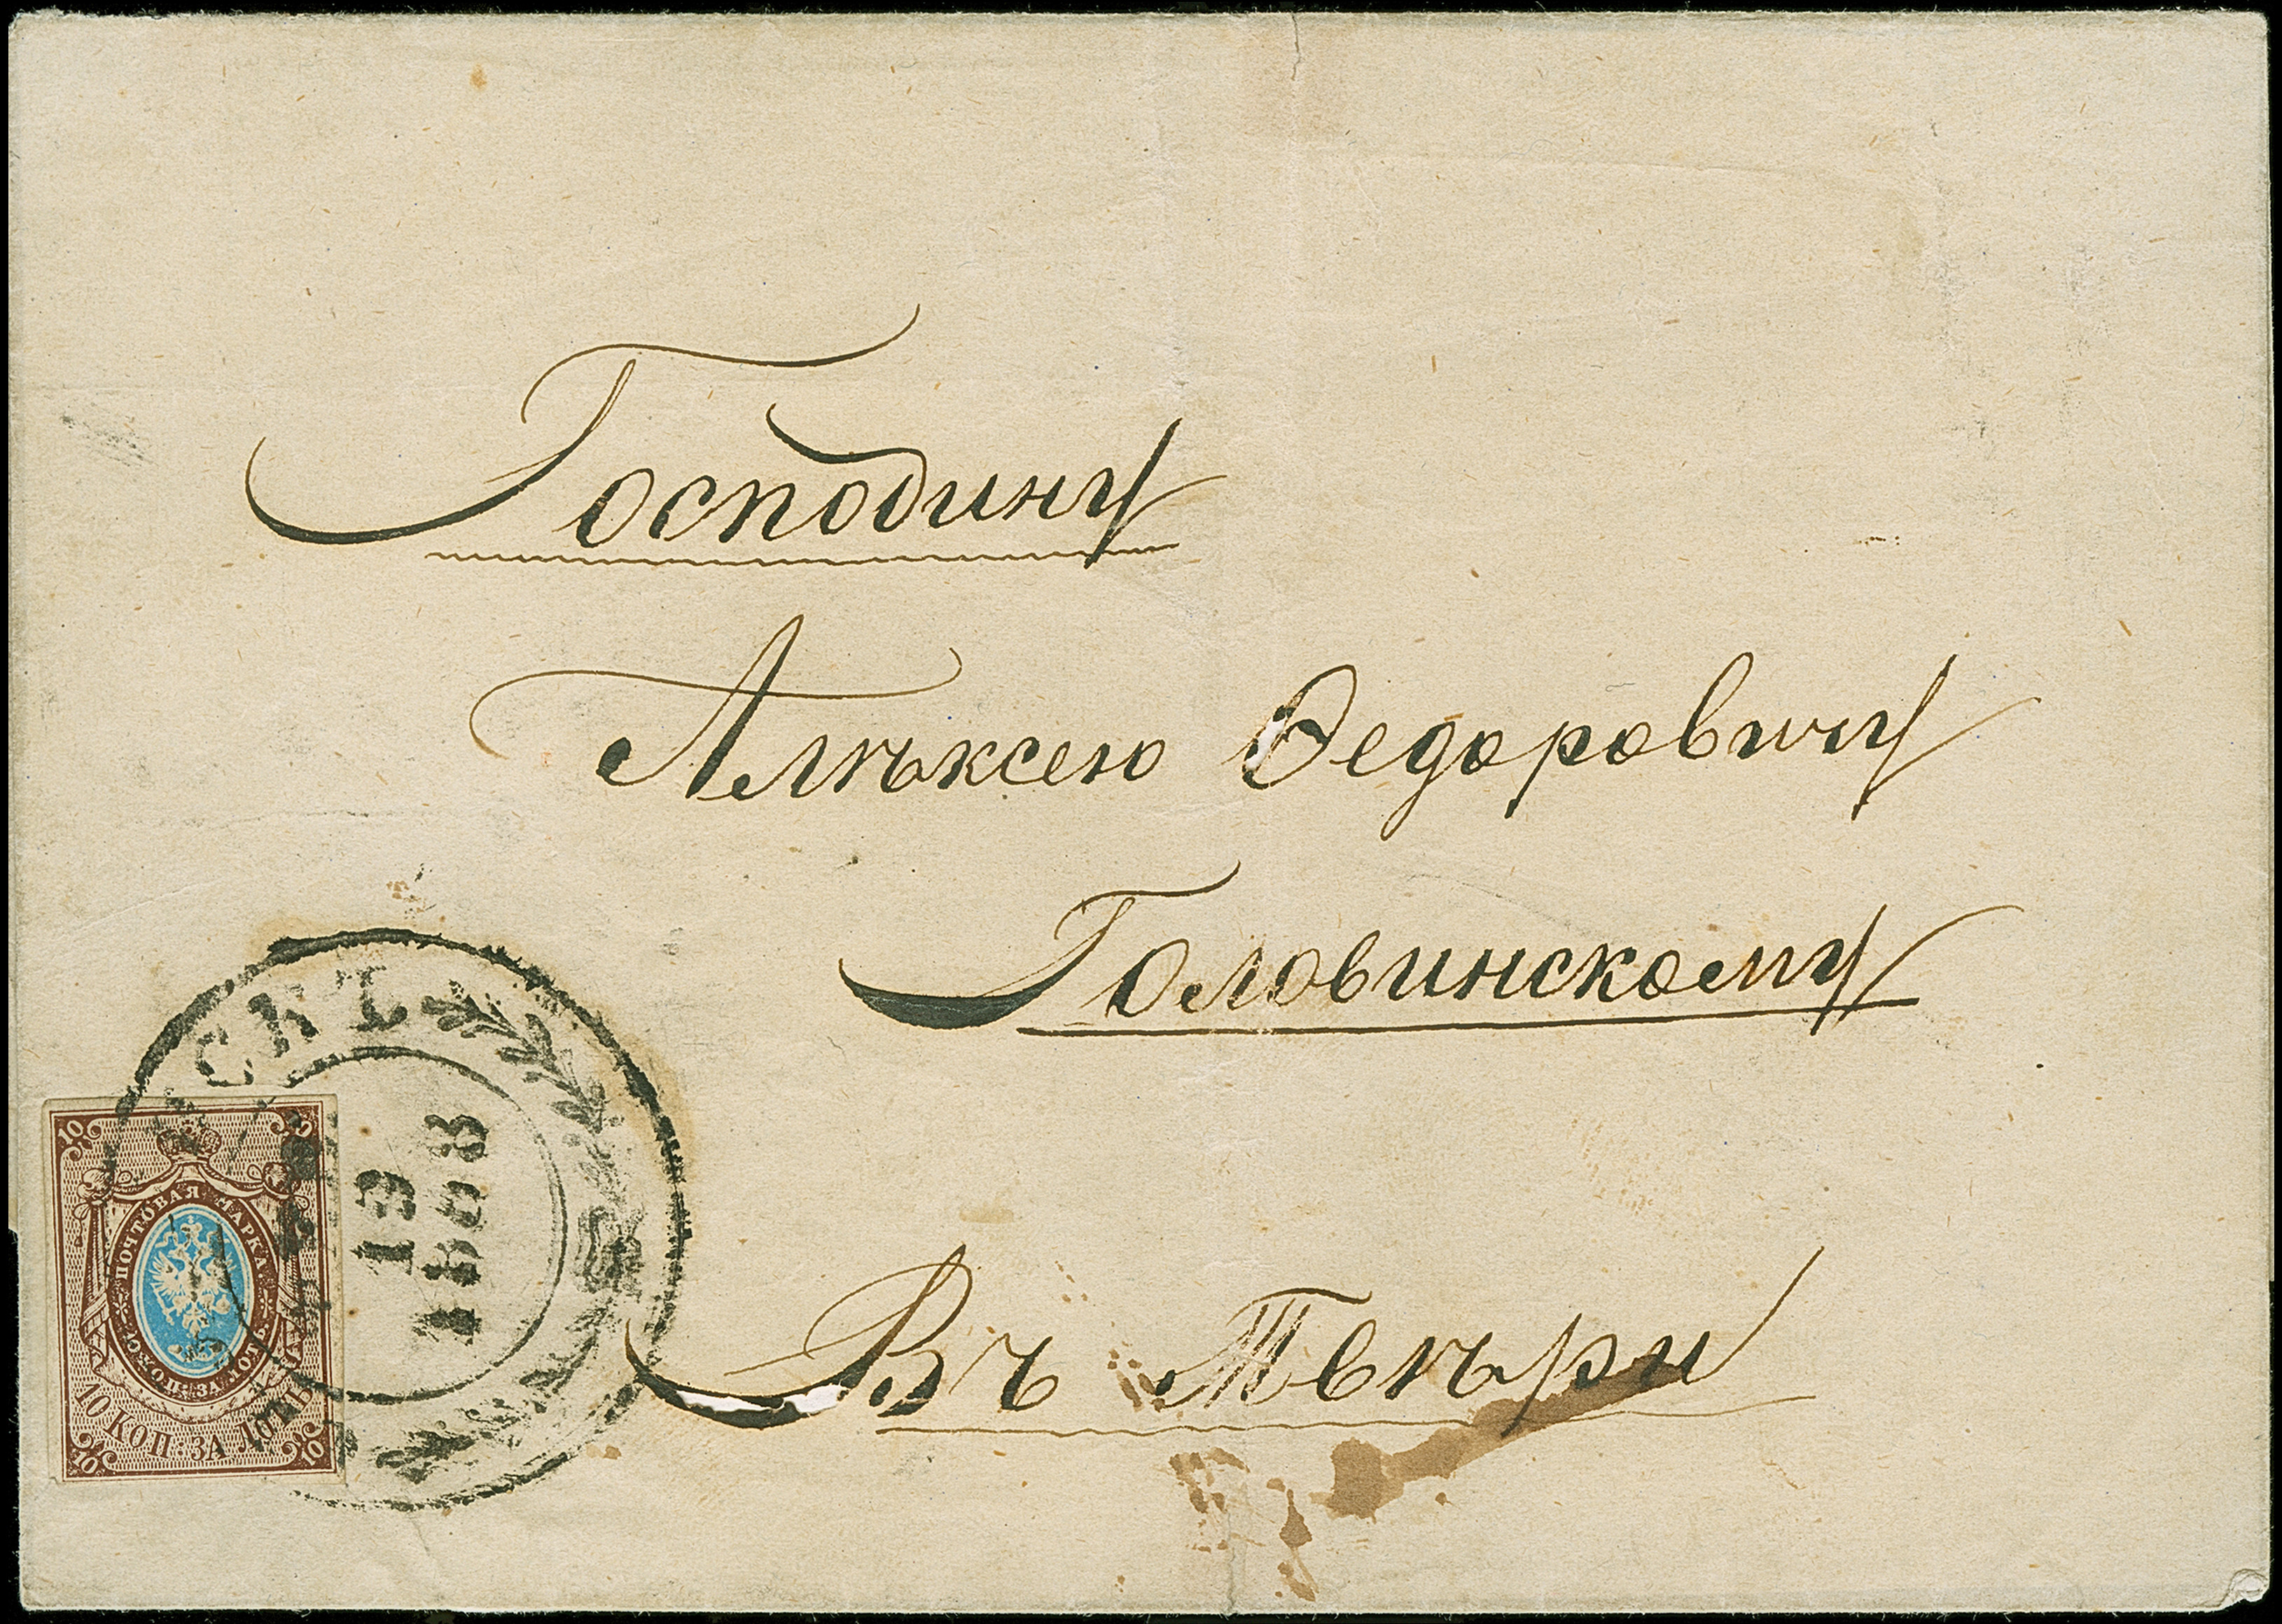 Господину
Алѣксею Ѳедоровичу
Головинскому
Въ Твѣри
СКЪ
19
1858
10 10
ПОЧТОВАЯ МАРКА
10 КОП: ЗА ЛОТЪ
10 КОП: ЗА ЛОТЪ
10 10